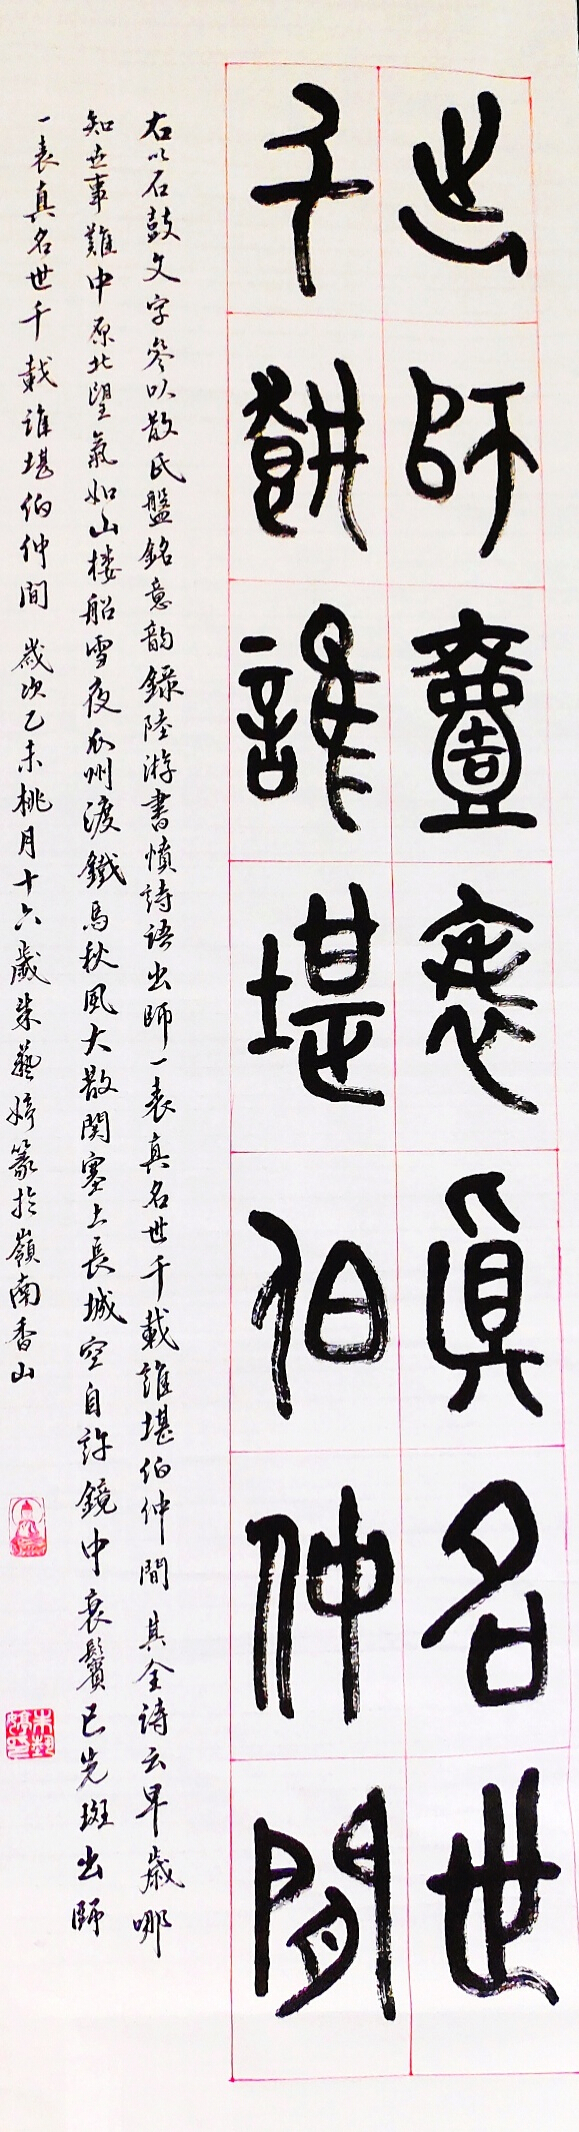 出師壹表真名世
千載誰堪伯仲間
右以石鼓文字參以散氏盤銘意韵錄陸游書憤詩語出師一表真名世千載誰堪伯仲間其全詩云早歲哪
知世事難中原北望氣如山樓船雪夜瓜州渡鐵馬秋風大散関塞上長城空自許鏡中衰鬢已先斑出師
一表真名世千載誰堪伯仲間歲次乙未桃月十六歲朱藝婷篆於嶺南香山